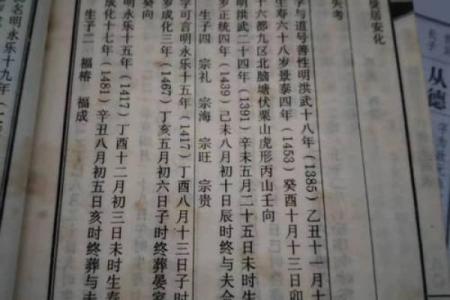 从德
居安化
失考
字与道号善性明洪武十八年(1385)乙丑十一月十
生寿六十八岁景泰四年(1453)癸酉十月十三日卯
十六都九区北脑塘伏栗山虎形丙山壬向
明洪武二十四年(1391)辛未五月二十五日未时生
岁正统四年(1439)己未八月初十日辰时终与夫合
生子四 宗礼 宗海 宗旺 宗贵
字可言明永乐十五年(1417)丁酉八月十三日子时
岁成化三年(1467)丁亥五月初六日子时终葬晏家
癸向
明永乐十五年(1417)丁酉十二月初三日未时生寿
成化十七年(1481)辛丑八月初五日亥时终葬与夫
生子二 福椿 福成
名明永乐十九年(